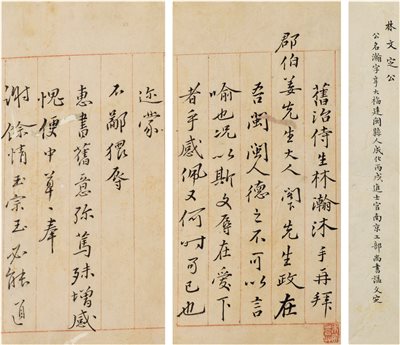 林文定公
公名瀚字亨大福建閩縣人成化丙戌進士官南京工部尚書謚文定
舊治侍生林瀚沐手再拜
郡伯姜先生大人閣下先生政在
吾閩閩人德之不可以言
喻也况以斯文辱在愛下
者乎感佩又何時可已也
迩蒙
不鄙猥辱
惠書舊意弥篤殊增感
愧便中草草奉
謝餘情玉宗玉必能道